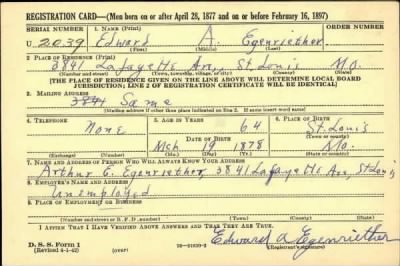 REGISTRATION CARD—(Men born on or after April 28, 1877 and on or before February 16, 1897)
SERIAL NUMBER 1. NAME (Print) ORDER NUMBER
U 2039 Edward A. Egenriether
(First) (Middle) (Last)
2. PLACE OF RESIDENCE (Print)
3841 Lafayette Ave, St. Louis Mo.
(Number and street) (Town, township, village, or city) (County) (State)
[THE PLACE OF RESIDENCE GIVEN ON THE LINE ABOVE WILL DETERMINE LOCAL BOARD
JURISDICTION; LINE 2 OF REGISTRATION CERTIFICATE WILL BE IDENTICAL]
3. MAILING ADDRESS
3841 Same
[Mailing address if other than place indicated on line 2. If same insert word same]
4. TELEPHONE 5. AGE IN YEARS 6. PLACE OF BIRTH
None 64 St. Louis
DATE OF BIRTH (Town or county)
Mch 19 1878 Mo.
(Exchange) (Number) (Mo.) (Day) (Yr.) (State or country)
7. NAME AND ADDRESS OF PERSON WHO WILL ALWAYS KNOW YOUR ADDRESS
Arthur E. Egenriether, 3841 Lafayette Ave, St Louis
8. EMPLOYER'S NAME AND ADDRESS
Unemployed
9. PLACE OF EMPLOYMENT OR BUSINESS
(Number and street or R. F. D. number) (Town) (County) (State)
I AFFIRM THAT I HAVE VERIFIED ABOVE ANSWERS AND THAT THEY ARE TRUE.
D. S. S. Form 1
(Revised 4-1-42) (over) 16—21630-2 Edward A Egenriether
(Registrant's signature)